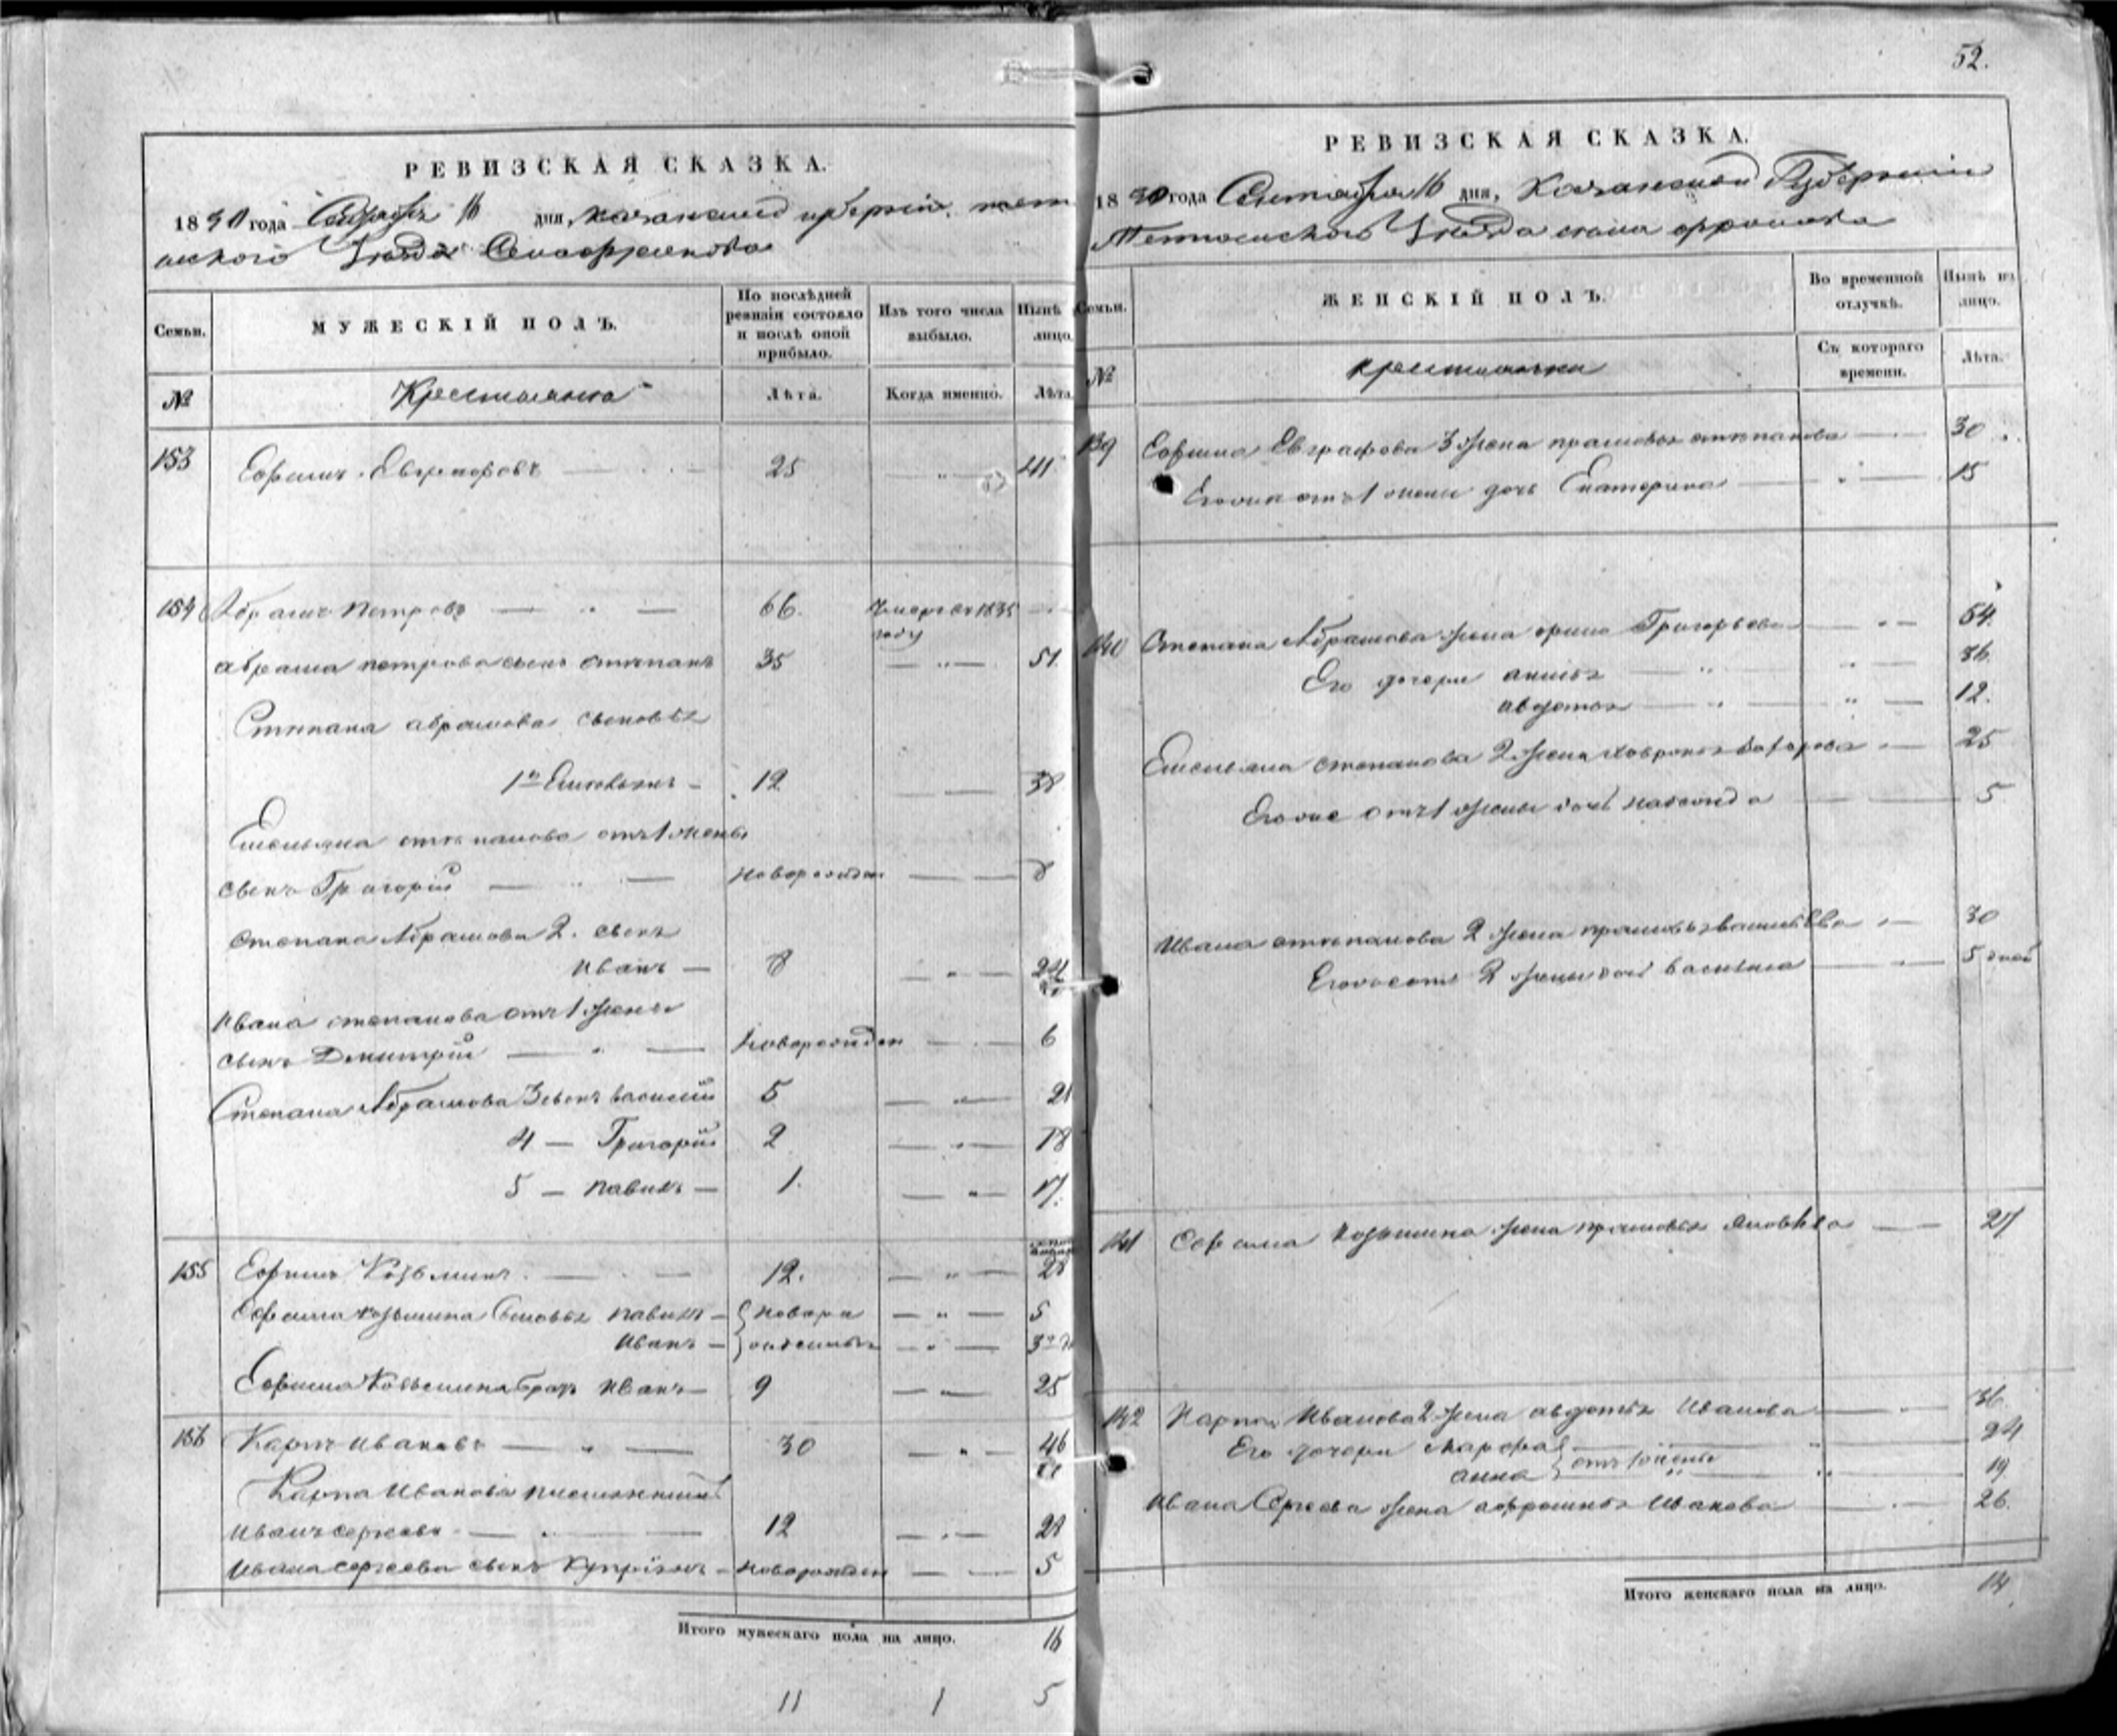 52.
РЕВИЗСКАЯ СКАЗКА.
1850 года Сентября 16 дня, Казанской губернии, тетю
шского Уезда Села
Семьи.
МУЖЕСКІЙ ПОЛЪ.
По послѣдней ревизіи состояло и послѣ оной прибыло.
Изъ того числа выбыло.
Нынѣ лицо.
№
Крестьяна
Лѣта.
Когда именно.
Лѣта
153 Ефимъ 25 41
154 Абрамъ Петровъ 66. Умеръ въ 1835 году
абрама петрова сынъ степанъ 35 51
Степана абрамова сыновья
1й Емельянъ 12 38
Емельяна степанова отъ 1 жены
сынъ Григорій новорожден 8
Степана Абрамова 2. сынъ
Иванъ 8 24
Ивана степанова отъ 1 жены
сынъ Дмитрій новорожден 6
Степана Абрамова 3 сынъ василій 5 21
4 — Григорій 2 18
5 — павилъ 1. 17.
155 Ефимъ Козьминъ 12. 28
Ефима козьмина сыновья павилъ новоро 5
Иванъ
Ефима Козьмина братъ иванъ 9 25
156 Карпъ Ивановъ 30 46
Карпа Иванова
Иванъ сергеевъ 12 28
Ивана сергеева сынъ Купріянъ новорожден 5
Итого мужескаго пола на лицо. 16
11 1 5
РЕВИЗСКАЯ СКАЗКА.
1850 года Сентября 16 дня, Казанской Губерніи
Тетюшскаго Уезда села
Семьи.
ЖЕНСКІЙ ПОЛЪ.
Во временной отлучкѣ.
Нынѣ на лицо.
№
крестьянки
Съ котораго времени.
Лѣта.
139 Ефима Евграфова 3 жена прасковья степанова 30
Его же отъ 1 жены дочь Екатерина 15
140 Степана Абрамова жена Григорьева 54.
Его дочери 16.
авдотья 12.
Емельяна степанова 2 жена 25
Его же отъ 1 жены дочь 5
Ивана степанова 2 жена прасковья 30
Его же отъ 2 жены дочь василиса 5 дней
141 Ефима козьмина жена прасковья Яковлева 27
142 Карпа Иванова 2 жена авдотья Иванова 36
Его дочери марфа 24
анна отъ 1 жены 19
Ивана Сергеева жена Иванова 26.
Итого женскаго пола на лицо. 14